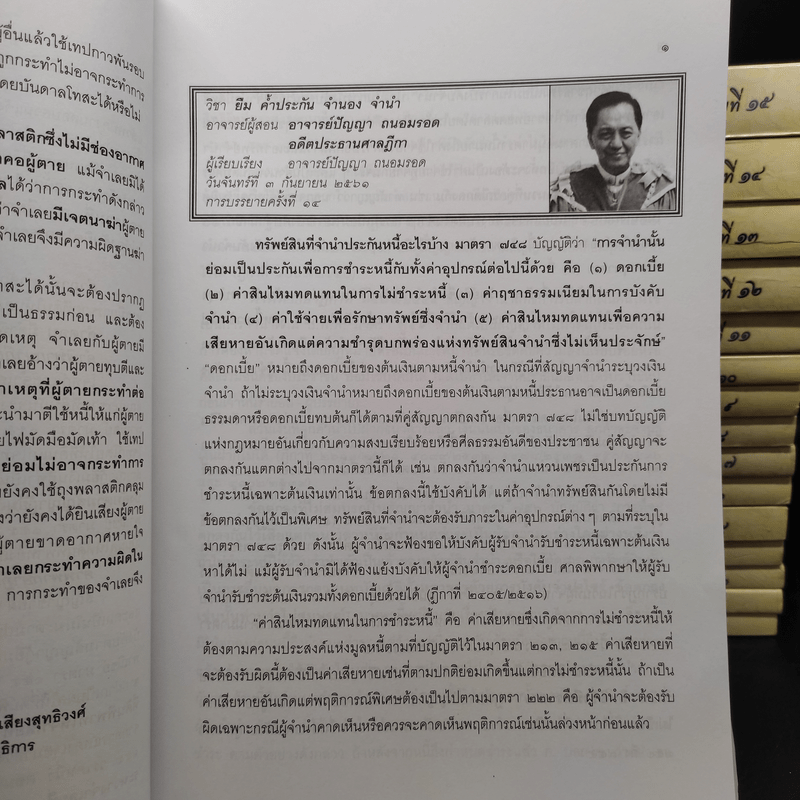 ผู้อื่นแล้วใช้เทปกาวพันรอบ
ถูกกระทำไม่อาจกระทำการ
โดยบันดาลโทสะได้หรือไม่
ลาสติกซึ่งไม่มีช่องอากาศ
คอผู้ตาย แม้จำเลยมิได้
ลได้ว่าการกระทำดังกล่าว
ว่าจำเลยมีเจตนาฆ่าผู้ตาย
จำเลยจึงมีความผิดฐานฆ่า
สะได้นั้นจะต้องปรากฏ
เป็นธรรมก่อน และต้อง
ดเหตุ จำเลยกับผู้ตายมี
เลยอ้างว่าผู้ตายทุบตีและ
าเหตุที่ผู้ตายกระทำต่อ
ะนำมาตีใช้หนี้ให้แก่ผู้ตาย
ยไฟมัดมือมัดเท้า ใช้เทป
ย่อมไม่อาจกระทำการ
ยังคงใช้ถุงพลาสติกคลุม
งว่ายังคงได้ยินเสียงผู้ตาย
ผู้ตายขาดอากาศหายใจ
าเลยกระทำความผิดใน
การกระทำของจำเลยจึง
เสียงสุทธิวงศ์
ธิการ
๑
วิชา ยืม ค้ำประกัน จำนอง จำนำ
อาจารย์ผู้สอน อาจารย์ปัญญา ถนอมรอด
อดีตประธานศาลฎีกา
ผู้เรียบเรียง อาจารย์ปัญญา ถนอมรอด
วันจันทร์ที่ ๓ กันยายน ๒๕๖๑
การบรรยายครั้งที่ ๑๔
ทรัพย์สินที่จำนำประกันหนี้อะไรบ้าง มาตรา ๗๔๘ บัญญัติว่า “การจำนำนั้น
ย่อมเป็นประกันเพื่อการชำระหนี้กับทั้งค่าอุปกรณ์ต่อไปนี้ด้วย คือ (๑) ดอกเบี้ย
(๒) ค่าสินไหมทดแทนในการไม่ชำระหนี้ (๓) ค่าฤชาธรรมเนียมในการบังคับ
จำนำ (๔) ค่าใช้จ่ายเพื่อรักษาทรัพย์ซึ่งจำนำ (๕) ค่าสินไหมทดแทนเพื่อความ
เสียหายอันเกิดแต่ความชำรุดบกพร่องแห่งทรัพย์สินจำนำซึ่งไม่เห็นประจักษ์”
“ดอกเบี้ย” หมายถึงดอกเบี้ยของต้นเงินตามหนี้จำนำ ในกรณีที่สัญญาจำนำระบุวงเงิน
จำนำ ถ้าไม่ระบุวงเงินจำนำหมายถึงดอกเบี้ยของต้นเงินตามหนี้ประธานอาจเป็นดอกเบี้ย
ธรรมดาหรือดอกเบี้ยทบต้นก็ได้ตามที่คู่สัญญาตกลงกัน มาตรา ๗๔๘ ไม่ใช่บทบัญญัติ
แห่งกฎหมายอันเกี่ยวกับความสงบเรียบร้อยหรือศีลธรรมอันดีของประชาชน คู่สัญญาจะ
ตกลงกันแตกต่างไปจากมาตรานี้ก็ได้ เช่น ตกลงกันว่าจำนำแหวนเพชรเป็นประกันการ
ชำระหนี้เฉพาะต้นเงินเท่านั้น ข้อตกลงนี้ใช้บังคับได้ แต่ถ้าจำนำทรัพย์สินกันโดยไม่มี
ข้อตกลงกันไว้เป็นพิเศษ ทรัพย์สินที่จำนำจะต้องรับภาระในค่าอุปกรณ์ต่างๆ ตามที่ระบุใน
มาตรา ๗๔๘ ด้วย ดังนั้น ผู้จำนำจะฟ้องขอให้บังคับผู้รับจำนำรับชำระหนี้เฉพาะต้นเงิน
หาได้ไม่ แม้ผู้รับจำนำมิได้ฟ้องแย้งบังคับให้ผู้จำนำชำระดอกเบี้ย ศาลพิพากษาให้ผู้รับ
จำนำรับชำระต้นเงินรวมทั้งดอกเบี้ยด้วยได้ (ฎีกาที่ ๒๔๐๕/๒๕๑๖)
“ค่าสินไหมทดแทนในการชำระหนี้” คือ ค่าเสียหายซึ่งเกิดจากการไม่ชำระหนี้ให้
ต้องตามความประสงค์แห่งมูลหนี้ตามที่บัญญัติไว้ในมาตรา ๒๑๓, ๒๑๕ ค่าเสียหายที่
จะต้องรับผิดนี้ต้องเป็นค่าเสียหายเช่นที่ตามปกติย่อมเกิดขึ้นแต่การไม่ชำระหนี้นั้น ถ้าเป็น
ค่าเสียหายอันเกิดแต่พฤติการณ์พิเศษต้องเป็นไปตามมาตรา ๒๒๒ คือ ผู้จำนำจะต้องรับ
ผิดเฉพาะกรณีผู้จำนำคาดเห็นหรือควรจะคาดเห็นพฤติการณ์เช่นนั้นล่วงหน้าก่อนแล้ว
ที่ ๑๕
ที่ ๑๔
ที่ ๑๓
ที่ ๑๒
๑๑
๑๐
๙
๘
๗